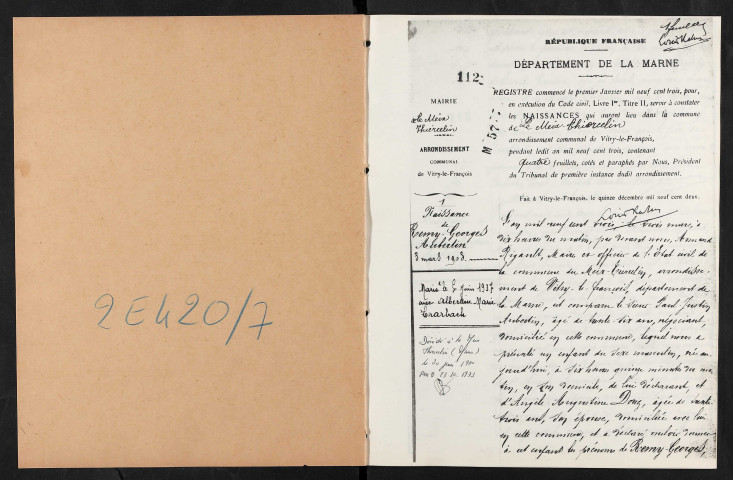 2E420/7
RÉPUBLIQUE FRANÇAISE
DÉPARTEMENT DE LA MARNE
112
MAIRIE
Le Meix
Thiercelin
ARRONDISSEMENT
COMMUNAL
de Vitry-le-François
REGISTRE commencé le premier Janvier mil neuf cent trois, pour,
en exécution du Code civil, Livre Ier, Titre II, servir à constater
les NAISSANCES qui auront lieu dans la commune
de Le Meix Thiercelin
arrondissement communal de Vitry-le-François,
pendant ledit an mil neuf cent trois, contenant
quatre feuillets, cotés et paraphés par Nous, Président
du Tribunal de première instance dudit arrondissement.
Fait à Vitry-le-François, le quinze décembre mil neuf cent deux.
1
Naissance
de
Remy Georges
Aubertin
3 mars 1903.
Marié le 5 juin 1937
avec Albertine Marie
Trarbach
Décédé à le Meix
L'an mil neuf cent trois, le trois mars, à
dix heures du matin, par devant nous, Armand
Rigault, Maire et officier de l'Etat civil de
la commune du Meix-Tiercelin, arrondisse-
ment de Vitry-le-François, département de
la Marne, est comparu le sieur Paul Justin
Aubertin, âgé de trente six ans, négociant,
domicilié en cette commune, lequel nous a
présenté un enfant du sexe masculin, né au-
jourd'hui, à six heures quinze minutes du ma-
tin, en son domicile, de lui déclarant, et
d'Angèle Augustine Douz, âgée de trente
trois ans, son épouse, domiciliée avec lui
en cette commune, et a déclaré vouloir donner
à cet enfant les prénoms de Remy-Georges,